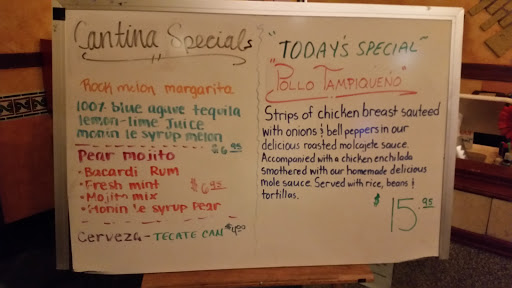 Cantina Specials
Rock melon margarita
100% blue agave tequila
lemon-lime Juice
monin le syrup melon
$6.95
Pear mojito
• Bacardi Rum
• Fresh mint
$6.95
• Mojito mix
• Monin le syrup Pear
Cerveza - TECATE CAN $4.00
"TODAY'S SPECIAL"
"POLLO TAMPIQUENO"
Strips of chicken breast sauteed
with onions & bell peppers in our
delicious roasted molcajete sauce.
Accompanied with a chicken enchilada
smothered with our homemade delicious
mole sauce. Served with rice, beans &
tortillas.
$15.95